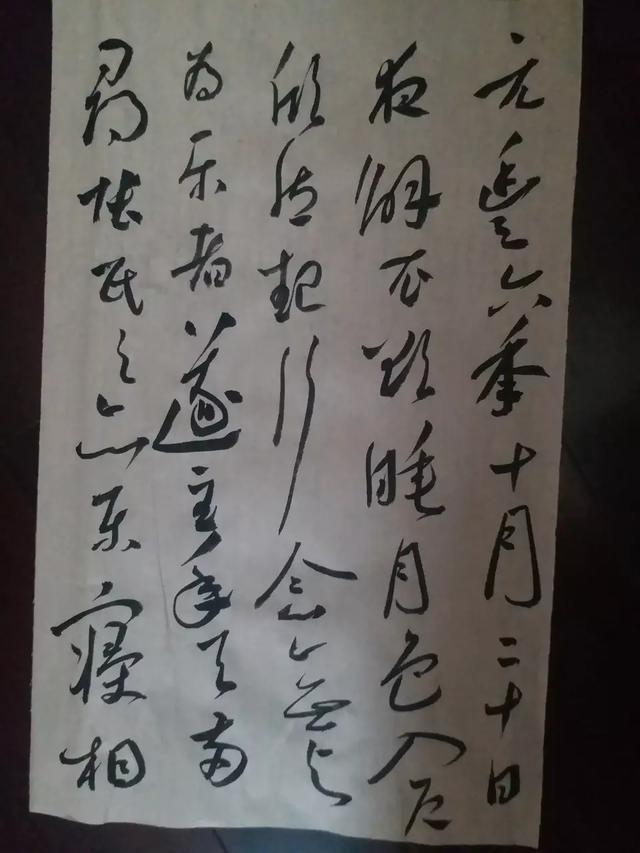 元豐六季十月二十日
夜解衣欲睡月色入户
欣然起行念無与
为乐者遂至承天寺
尋怀民亦未寝相